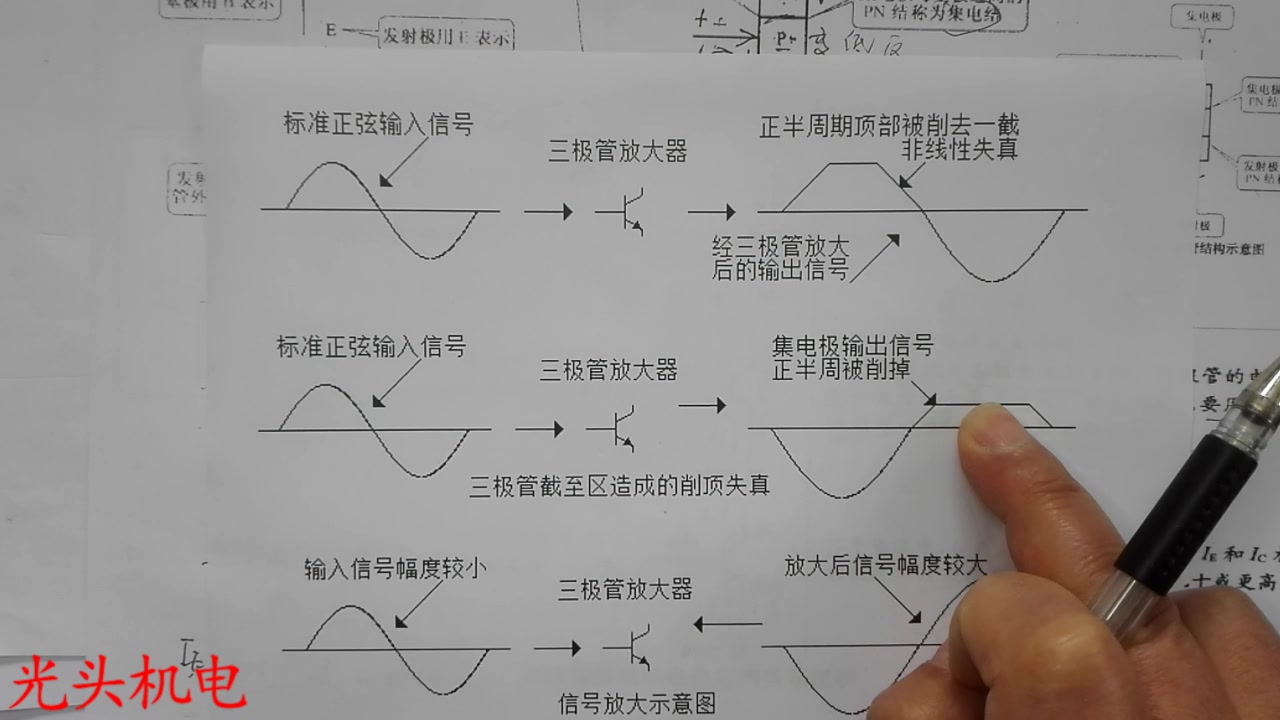 极用 B 表示
E
发射极用 E 表示
PN 结称为集电结
集电极
标准正弦输入信号
三极管放大器
正半周期顶部被削去一截
非线性失真
经三极管放大
后的输出信号
集电极
PN 结
发射极
PN 结
结构示意图
标准正弦输入信号
三极管放大器
集电极输出信号
正半周被削掉
三极管截至区造成的削顶失真
管的
输入信号幅度较小
三极管放大器
放大后信号幅度较大
信号放大示意图
IE 和 IC
十或更高
IE
光头机电